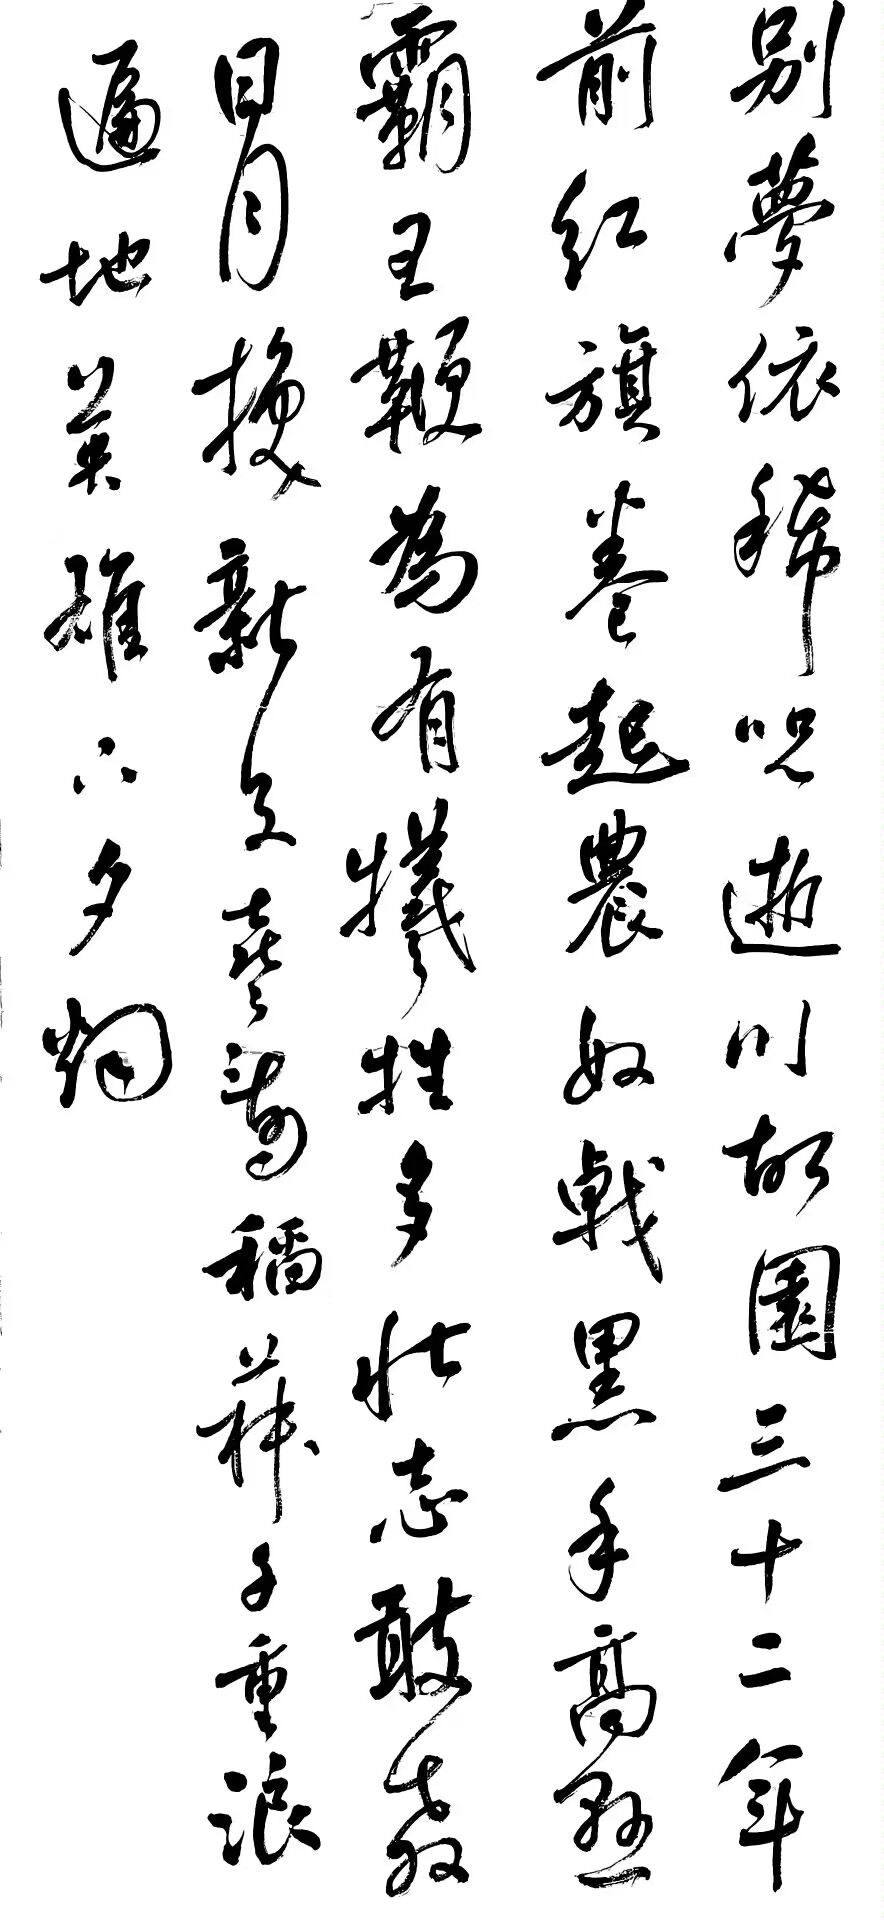 别夢依稀咒逝川故園三十二年
前红旗卷起農奴戟黑手高悬
霸王鞭為有犧牲多壮志敢教
日月换新天喜看稻菽千重浪
遍地英雄下夕烟